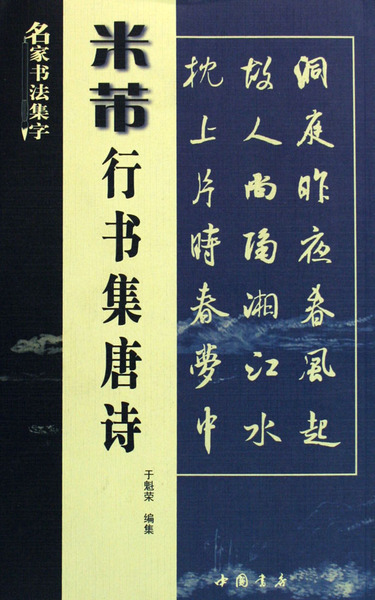 名家书法集字
米芾
行书集唐诗
于魁荣 编集
洞庭昨夜春風起
故人尚隔湘江水
枕上片時春夢中
中国書店